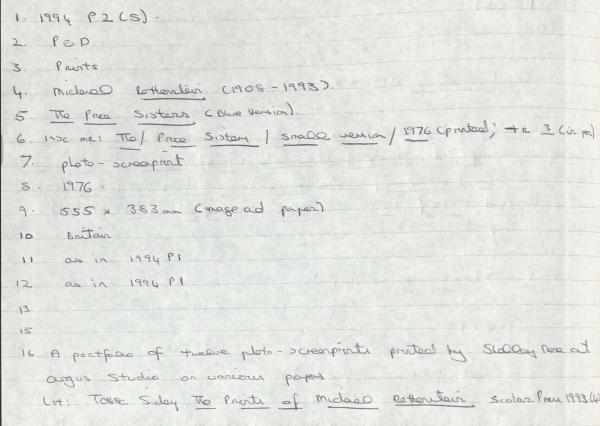 1. 1994 P2(S).
2. P&D
3 Prints
4. Michael Rothenstein (1908-1993).
5 The Price Sisters (Blue Version).
6. insc me: The/ Price Sisters / small version / 1976 (printed; 3 (in
7. photo-screenprint
8. 1976.
9. 555 x 383mm (image and paper)
10 Britain
11 as in 1994 P1
12 as in 1994 P1
13
15
16. A portfolio of twelve photo-screenprints printed by Shelley Rose at
argus Studio on various papers
Litt: Tessa Sidey The Prints of Michael Rothenstein Scolar Press 1993